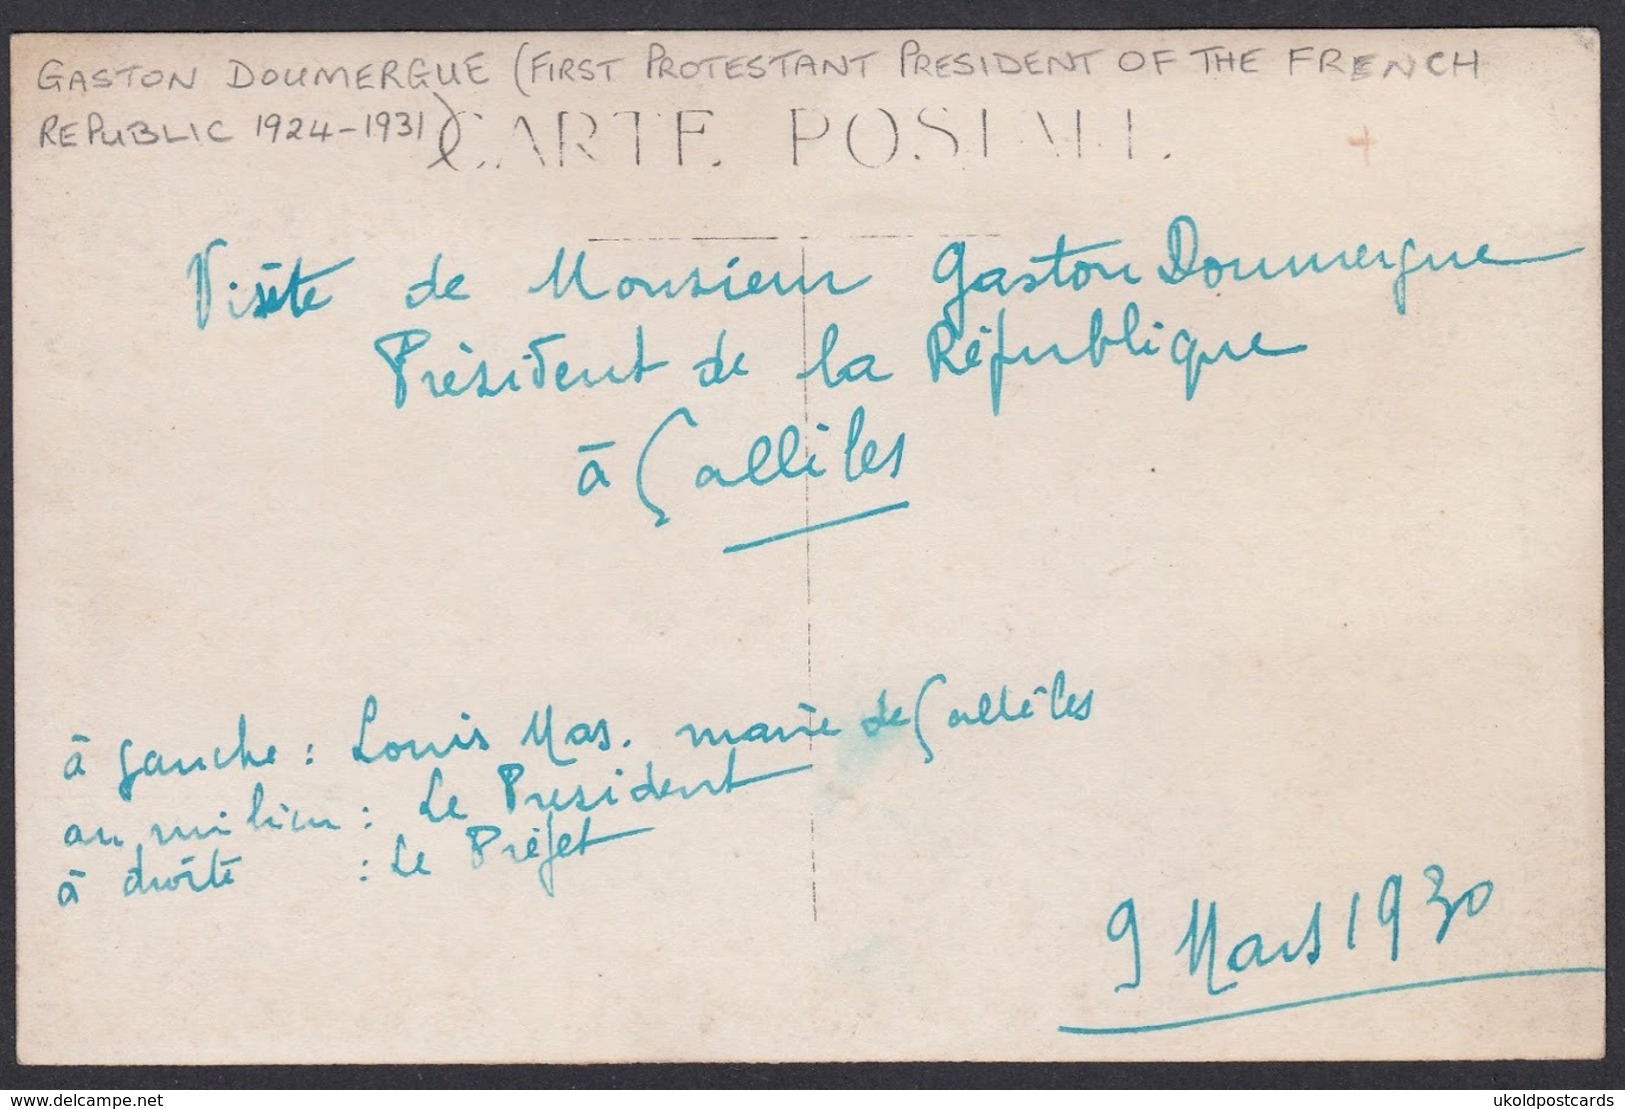 GASTON DOUMERGUE (FIRST PROTESTANT PRESIDENT OF THE FRENCH
REPUBLIC 1924-1931)
CARTE POSTALE
Visite de Monsieur Gaston Doumergue
Président de la République
à Sallèles
à gauche : Louis Mas. maire de Sallèles
au milieu : Le President
à droite : Le Préfet
9 Mars 1930
www.delcampe.net
ukoldpostcards